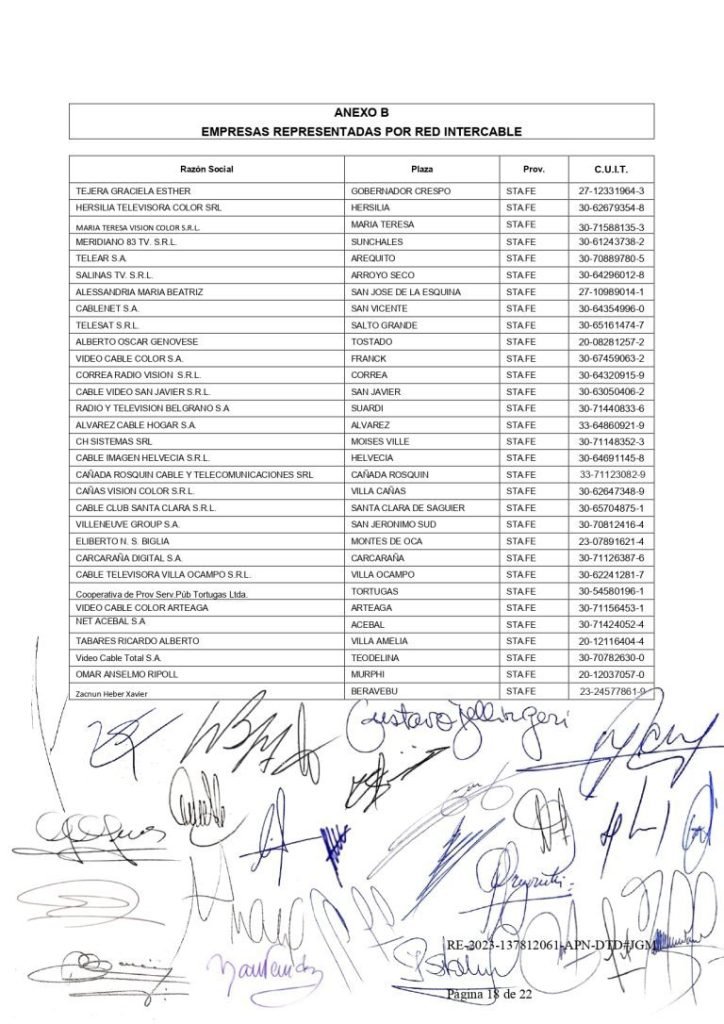 ANEXO B
EMPRESAS REPRESENTADAS POR RED INTERCABLE
Razón Social Plaza Prov. C.U.I.T.
TEJERA GRACIELA ESTHER GOBERNADOR CRESPO STA.FE 27-12331964-3
HERSILIA TELEVISORA COLOR SRL HERSILIA STA.FE 30-62679354-8
MARIA TERESA VISION COLOR S.R.L. MARIA TERESA STA.FE 30-71588135-3
MERIDIANO 83 TV. S.R.L. SUNCHALES STA.FE 30-61243738-2
TELEAR S.A. AREQUITO STA.FE 30-70889780-5
SALINAS TV. S.R.L. ARROYO SECO STA.FE 30-64296012-8
ALESSANDRIA MARIA BEATRIZ SAN JOSE DE LA ESQUINA STA.FE 27-10989014-1
CABLENET S.A. SAN VICENTE STA.FE 30-64354996-0
TELESAT S.R.L. SALTO GRANDE STA.FE 30-65161474-7
ALBERTO OSCAR GENOVESE TOSTADO STA.FE 20-08281257-2
VIDEO CABLE COLOR S.A. FRANCK STA.FE 30-67459063-2
CORREA RADIO VISION S.R.L. CORREA STA.FE 30-64320915-9
CABLE VIDEO SAN JAVIER S.R.L. SAN JAVIER STA.FE 30-63050406-2
RADIO Y TELEVISION BELGRANO S.A SUARDI STA.FE 30-71440833-6
ALVAREZ CABLE HOGAR S.A. ALVAREZ STA.FE 33-64860921-9
CH SISTEMAS SRL MOISES VILLE STA.FE 30-71148352-3
CABLE IMAGEN HELVECIA S.R.L. HELVECIA STA.FE 30-64691145-8
CAÑADA ROSQUIN CABLE Y TELECOMUNICACIONES SRL CAÑADA ROSQUIN STA.FE 33-71123082-9
CAÑAS VISION COLOR S.R.L. VILLA CAÑAS STA.FE 30-62647348-9
CABLE CLUB SANTA CLARA S.R.L. SANTA CLARA DE SAGUIER STA.FE 30-65704875-1
VILLENEUVE GROUP S.A. SAN JERONIMO SUD STA.FE 30-70812416-4
ELIBERTO N. S. BIGLIA MONTES DE OCA STA.FE 23-07891621-4
CARCARAÑA DIGITAL S.A. CARCARAÑA STA.FE 30-71126387-6
CABLE TELEVISORA VILLA OCAMPO S.R.L. VILLA OCAMPO STA.FE 30-62241281-7
Cooperativa de Prov Serv.Púb Tortugas Ltda. TORTUGAS STA.FE 30-54580196-1
VIDEO CABLE COLOR ARTEAGA ARTEAGA STA.FE 30-71156453-1
NET ACEBAL S.A ACEBAL STA.FE 30-71424052-4
TABARES RICARDO ALBERTO VILLA AMELIA STA.FE 20-12116404-4
Video Cable Total S.A. TEODELINA STA.FE 30-70782630-0
OMAR ANSELMO RIPOLL MURPHI STA.FE 20-12037057-0
Zacnun Heber Xavier BERAVEBU STA.FE 23-24577861-9
RE-2023-137812061-APN-DTD#JGM
Página 18 de 22